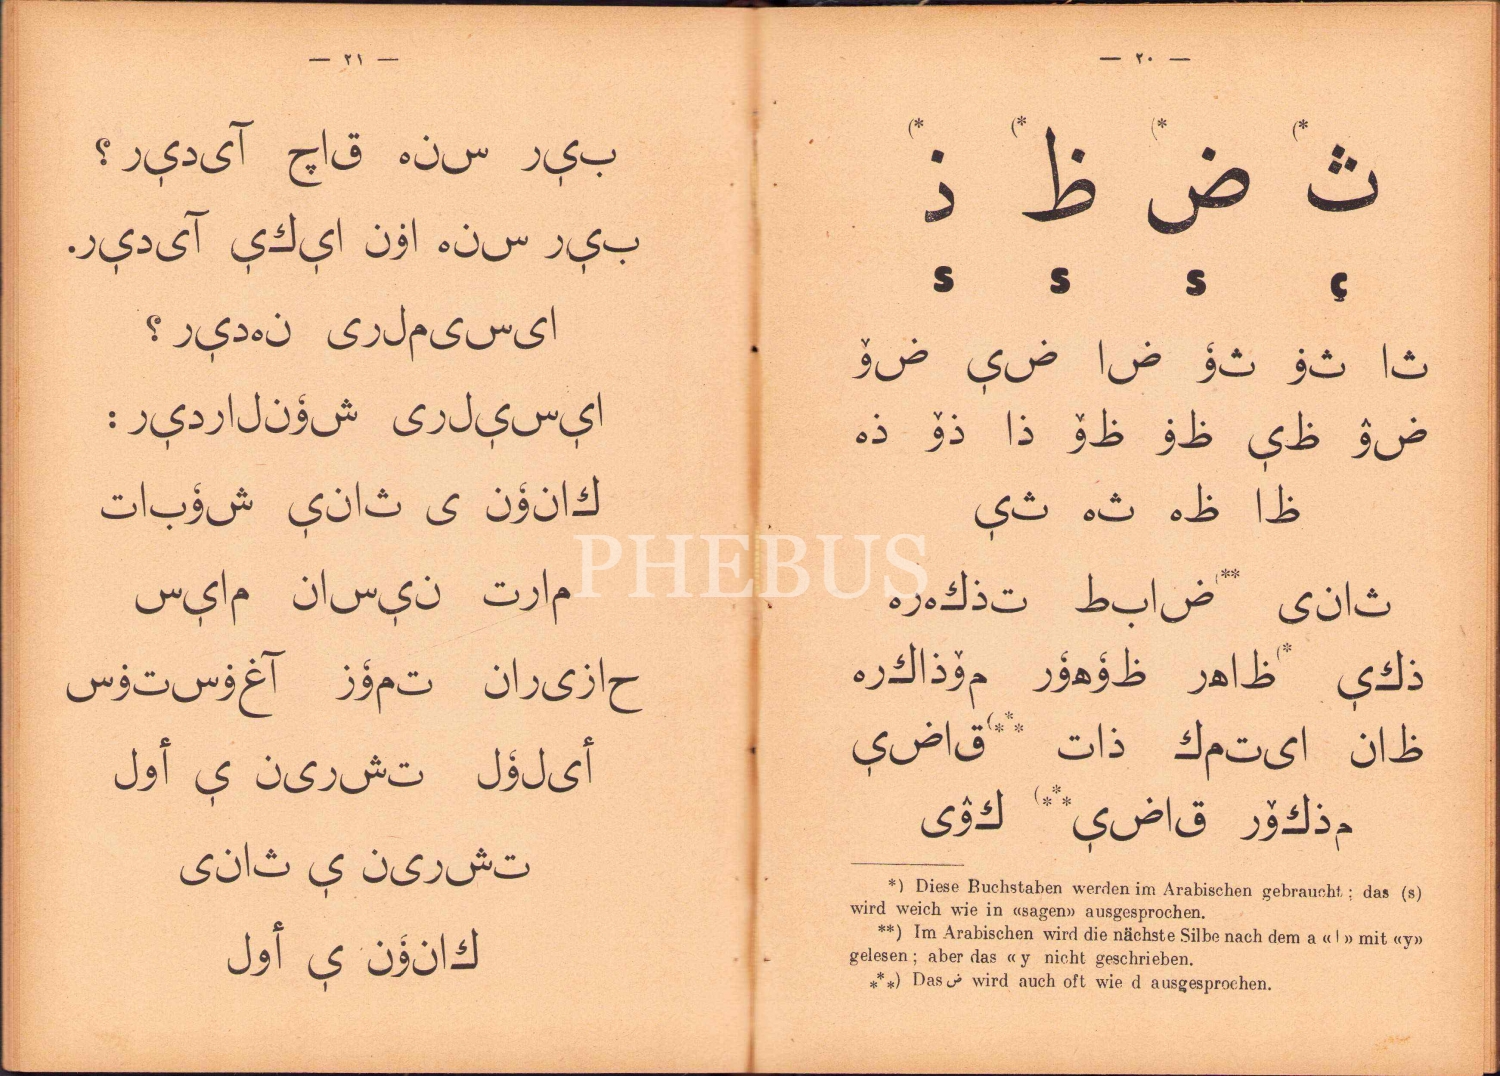 — ٢٠ —
ث*) ض*) ظ*) ذ*)
ç s s s
ثا ثۏ ثؤ ضا ضي ضۆ
ضۆ ظي ظۏ ظۆ ذا ذۆ ذه
ظا ظه ثه ثي
ثانی ضابط**) تذكەره
ذكي ظاهر*) ظؤهؤر مۆذاكره
ظان ایتمك ذات قاضي***)
مذكۆر قاضي***) كۆی
*) Diese Buchstaben werden im Arabischen gebraucht; das (s)
wird weich wie in «sagen» ausgesprochen.
**) Im Arabischen wird die nächste Silbe nach dem a «ا» mit «y»
gelesen; aber das «y nicht geschrieben.
***) Das ض wird auch oft wie d ausgesprochen.
— ٢١ —
بير سنه قاچ آیدير ؟
بير سنه اۏن ايكي آیدير.
ایسیملری نەدير ؟
ايسيملری شؤنلاردير :
كانؤن ی ثاني شؤبات
مارت نيسان مايس
حازیران تمؤز آغۏستۏس
أیلؤل تشرین ي أول
تشرین ي ثانی
كانؤن ي أول
PHEBUS